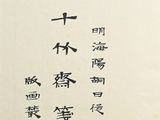 明海陽胡曰從
十竹齋箋
版画叢